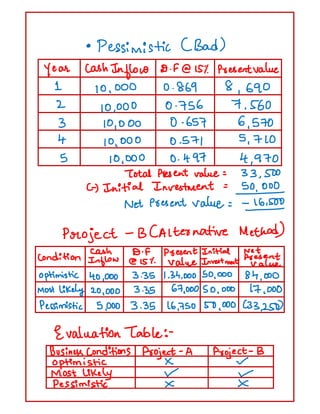 • Pessimistic (Bad)
Year Cash Inflow D.F @ 15% Present value
1 10,000 0.869 8,690
2 10,000 0.756 7.560
3 10,000 0.657 6,570
4 10,000 0.571 5,710
5 10,000 0.497 4,970
Total Present value = 33,500
(-) Initial Investment = 50,000
Net Present value = -16,500
Project - B (Alternative Method)
Condition Cash Inflow D.F @ 15% Present Value Initial Investment Net Present Value
Optimistic 40,000 3.35 1.34,000 50,000 84,000
Most Likely 20,000 3.35 67,000 50,000 17,000
Pessimistic 5,000 3.35 16,750 50,000 (33,250)
Evaluation Table:-
Business Conditions Project - A Project - B
Optimistic × ✓
Most Likely ✓ ✓
Pessimistic × ×